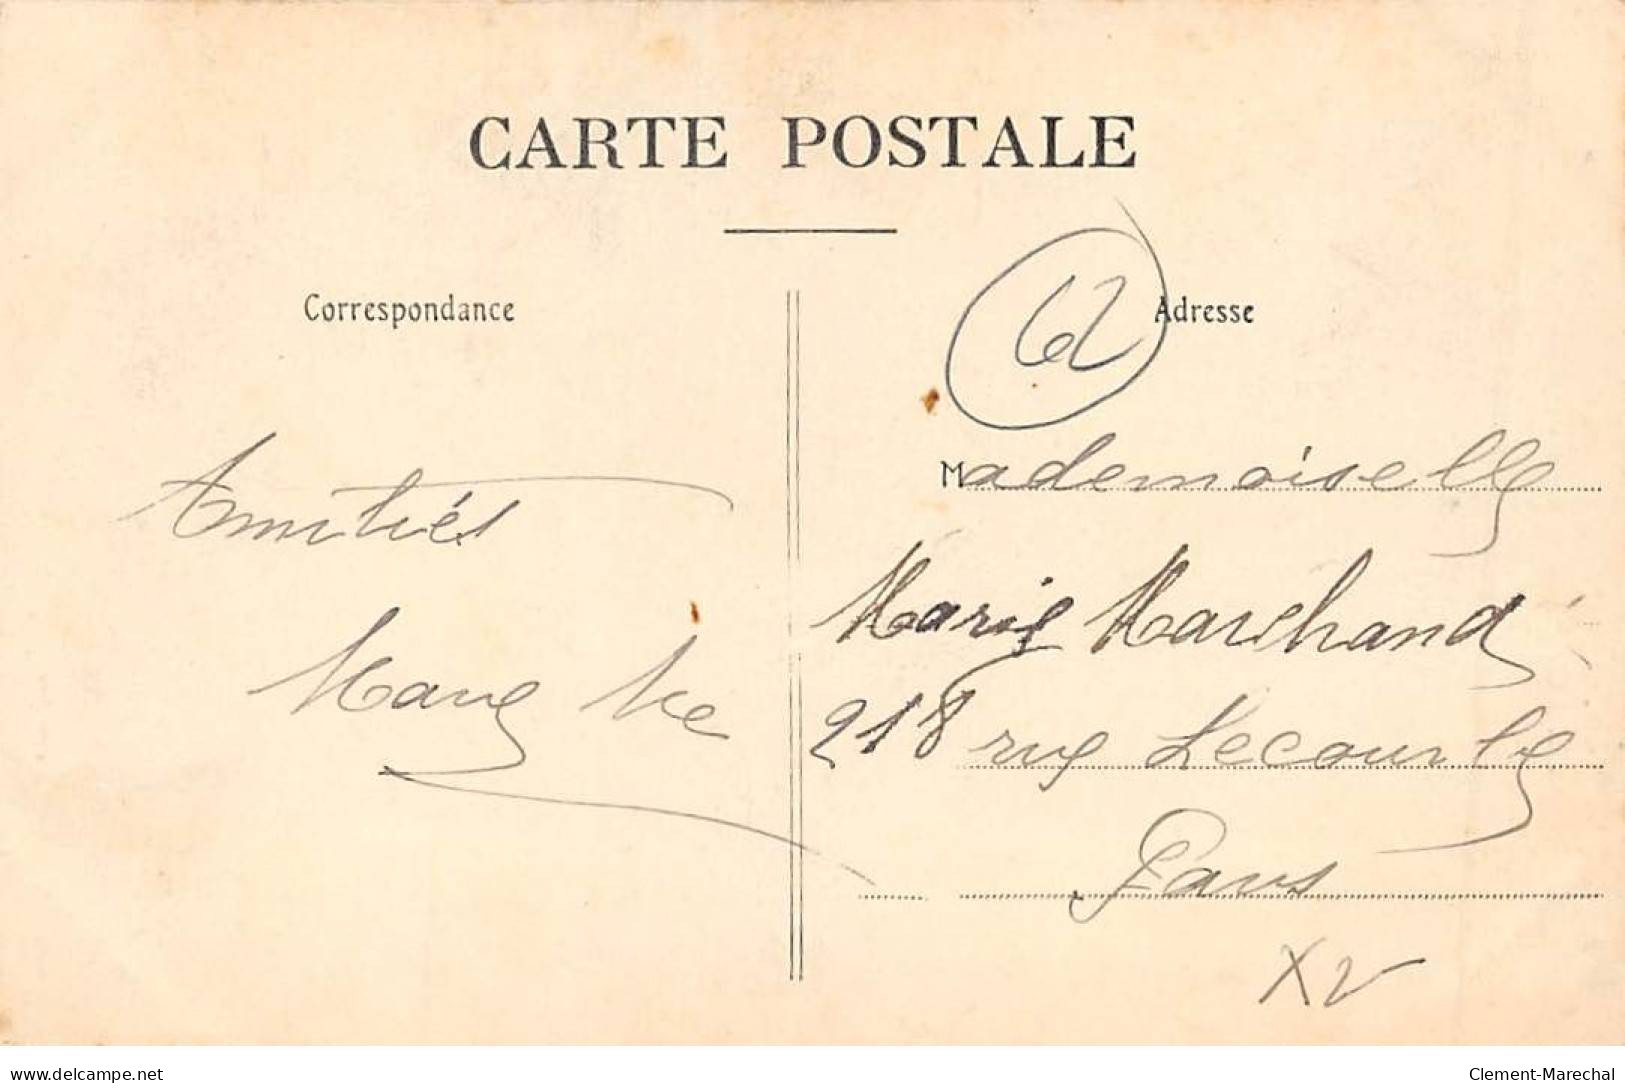 CARTE POSTALE
Correspondance
Adresse
62
Amitiés
Mademoiselle
Marie Marchand
218 rue Lecourbe
Paris
XV
www.delcampe.net
Clement-Marechal